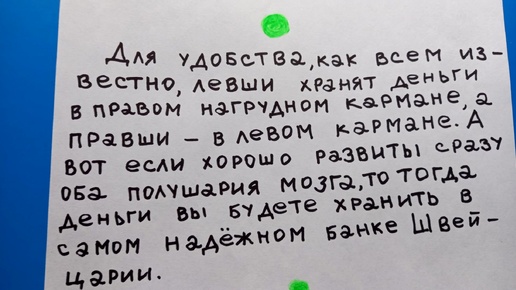 Для удобства, как всем из-
вестно, левши хранят деньги
в правом нагрудном кармане, а
правши – в левом кармане. А
вот если хорошо развиты сразу
оба полушария мозга, то тогда
деньги вы будете хранить в
самом надёжном банке Швей-
царии.